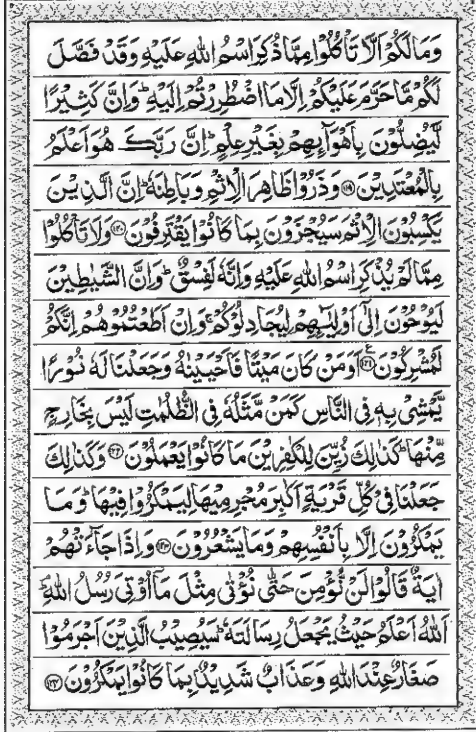 وَمَا لَكُمْ اَلَّا تَاْكُلُوْا مِمَّا ذُكِرَ اسْمُ اللهِ عَلَيْهِ وَقَدْ فَصَّلَ
لَكُمْ مَّا حَرَّمَ عَلَيْكُمْ اِلَّا مَا اضْطُرِرْتُمْ اِلَيْهِ ؕ وَاِنَّ كَثِيْرًا
لَّيُضِلُّوْنَ بِاَهْوَآئِهِمْ بِغَيْرِ عِلْمٍ ؕ اِنَّ رَبَّكَ هُوَ اَعْلَمُ
بِالْمُعْتَدِيْنَ ﴿۱۱۹﴾ وَذَرُوْا ظَاهِرَ الْاِثْمِ وَبَاطِنَهٗ ؕ اِنَّ الَّذِيْنَ
يَكْسِبُوْنَ الْاِثْمَ سَيُجْزَوْنَ بِمَا كَانُوْا يَقْتَرِفُوْنَ ﴿۱۲۰﴾ وَلَا تَاْكُلُوْا
مِمَّا لَمْ يُذْكَرِ اسْمُ اللهِ عَلَيْهِ وَاِنَّهٗ لَفِسْقٌ ؕ وَاِنَّ الشَّيٰطِيْنَ
لَيُوْحُوْنَ اِلٰٓى اَوْلِيٰٓئِهِمْ لِيُجَادِلُوْكُمْ ۚ وَاِنْ اَطَعْتُمُوْهُمْ اِنَّكُمْ
لَمُشْرِكُوْنَ ﴿۱۲۱﴾ ع اَوَمَنْ كَانَ مَيْتًا فَاَحْيَيْنٰهُ وَجَعَلْنَا لَهٗ نُوْرًا
يَّمْشِيْ بِهٖ فِي النَّاسِ كَمَنْ مَّثَلُهٗ فِي الظُّلُمٰتِ لَيْسَ بِخَارِجٍ
مِّنْهَا ؕ كَذٰلِكَ زُيِّنَ لِلْكٰفِرِيْنَ مَا كَانُوْا يَعْمَلُوْنَ ﴿۱۲۲﴾ وَكَذٰلِكَ
جَعَلْنَا فِيْ كُلِّ قَرْيَةٍ اَكٰبِرَ مُجْرِمِيْهَا لِيَمْكُرُوْا فِيْهَا ؕ وَمَا
يَمْكُرُوْنَ اِلَّا بِاَنْفُسِهِمْ وَمَا يَشْعُرُوْنَ ﴿۱۲۳﴾ وَاِذَا جَآءَتْهُمْ
اٰيَةٌ قَالُوْا لَنْ نُّؤْمِنَ حَتّٰى نُؤْتٰى مِثْلَ مَآ اُوْتِيَ رُسُلُ اللهِ ؕ
اَللهُ اَعْلَمُ حَيْثُ يَجْعَلُ رِسَالَتَهٗ ؕ سَيُصِيْبُ الَّذِيْنَ اَجْرَمُوْا
صَغَارٌ عِنْدَ اللهِ وَعَذَابٌ شَدِيْدٌۢ بِمَا كَانُوْا يَمْكُرُوْنَ ﴿۱۲۴﴾